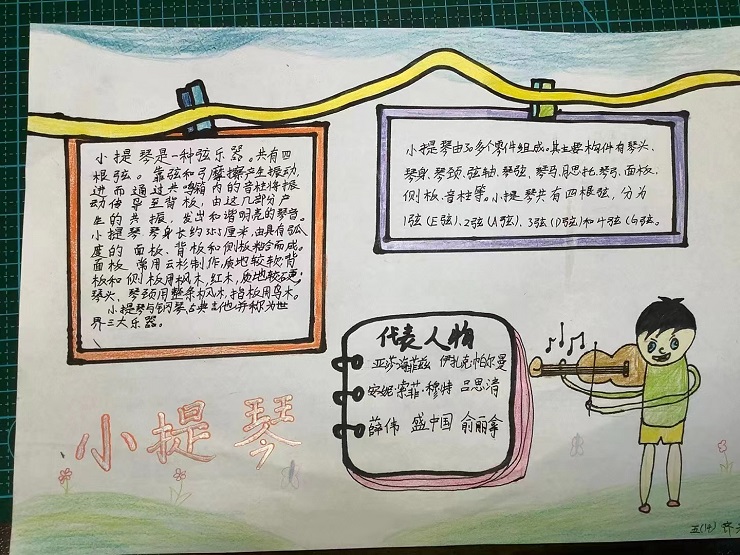 小提琴是一种弦乐器。共有四
根弦。靠弦和弓摩擦产生振动,
进而通过共鸣箱内的音柱将振
动传导至背板,由这几部分产
生的共振,发出和谐明亮的琴音。
小提琴琴身长约35.5厘米,由具有弧
度的面板、背板和侧板粘合而成。
面板常用云杉制作,质地较软背
板和侧板用枫木,红木,质地较硬;
琴头、琴颈用整条枫木,指板用乌木。
小提琴与钢琴古典吉他,并称为世
界三大乐器。
小提琴由30多个零件组成。其主要构件有琴头、
琴身、琴颈、弦轴、琴弦、琴马、腮托、琴弓、面板、
侧板、音柱等。小提琴共有四根弦,分为
1弦(E弦)、2弦(A弦)、3弦(D弦)和4弦(G弦。
代表人物
亚莎·海菲兹 伊扎克·帕尔曼
安妮·索菲·穆特 吕思清
薛伟 盛中国 俞丽拿
小提琴
五(14) 齐